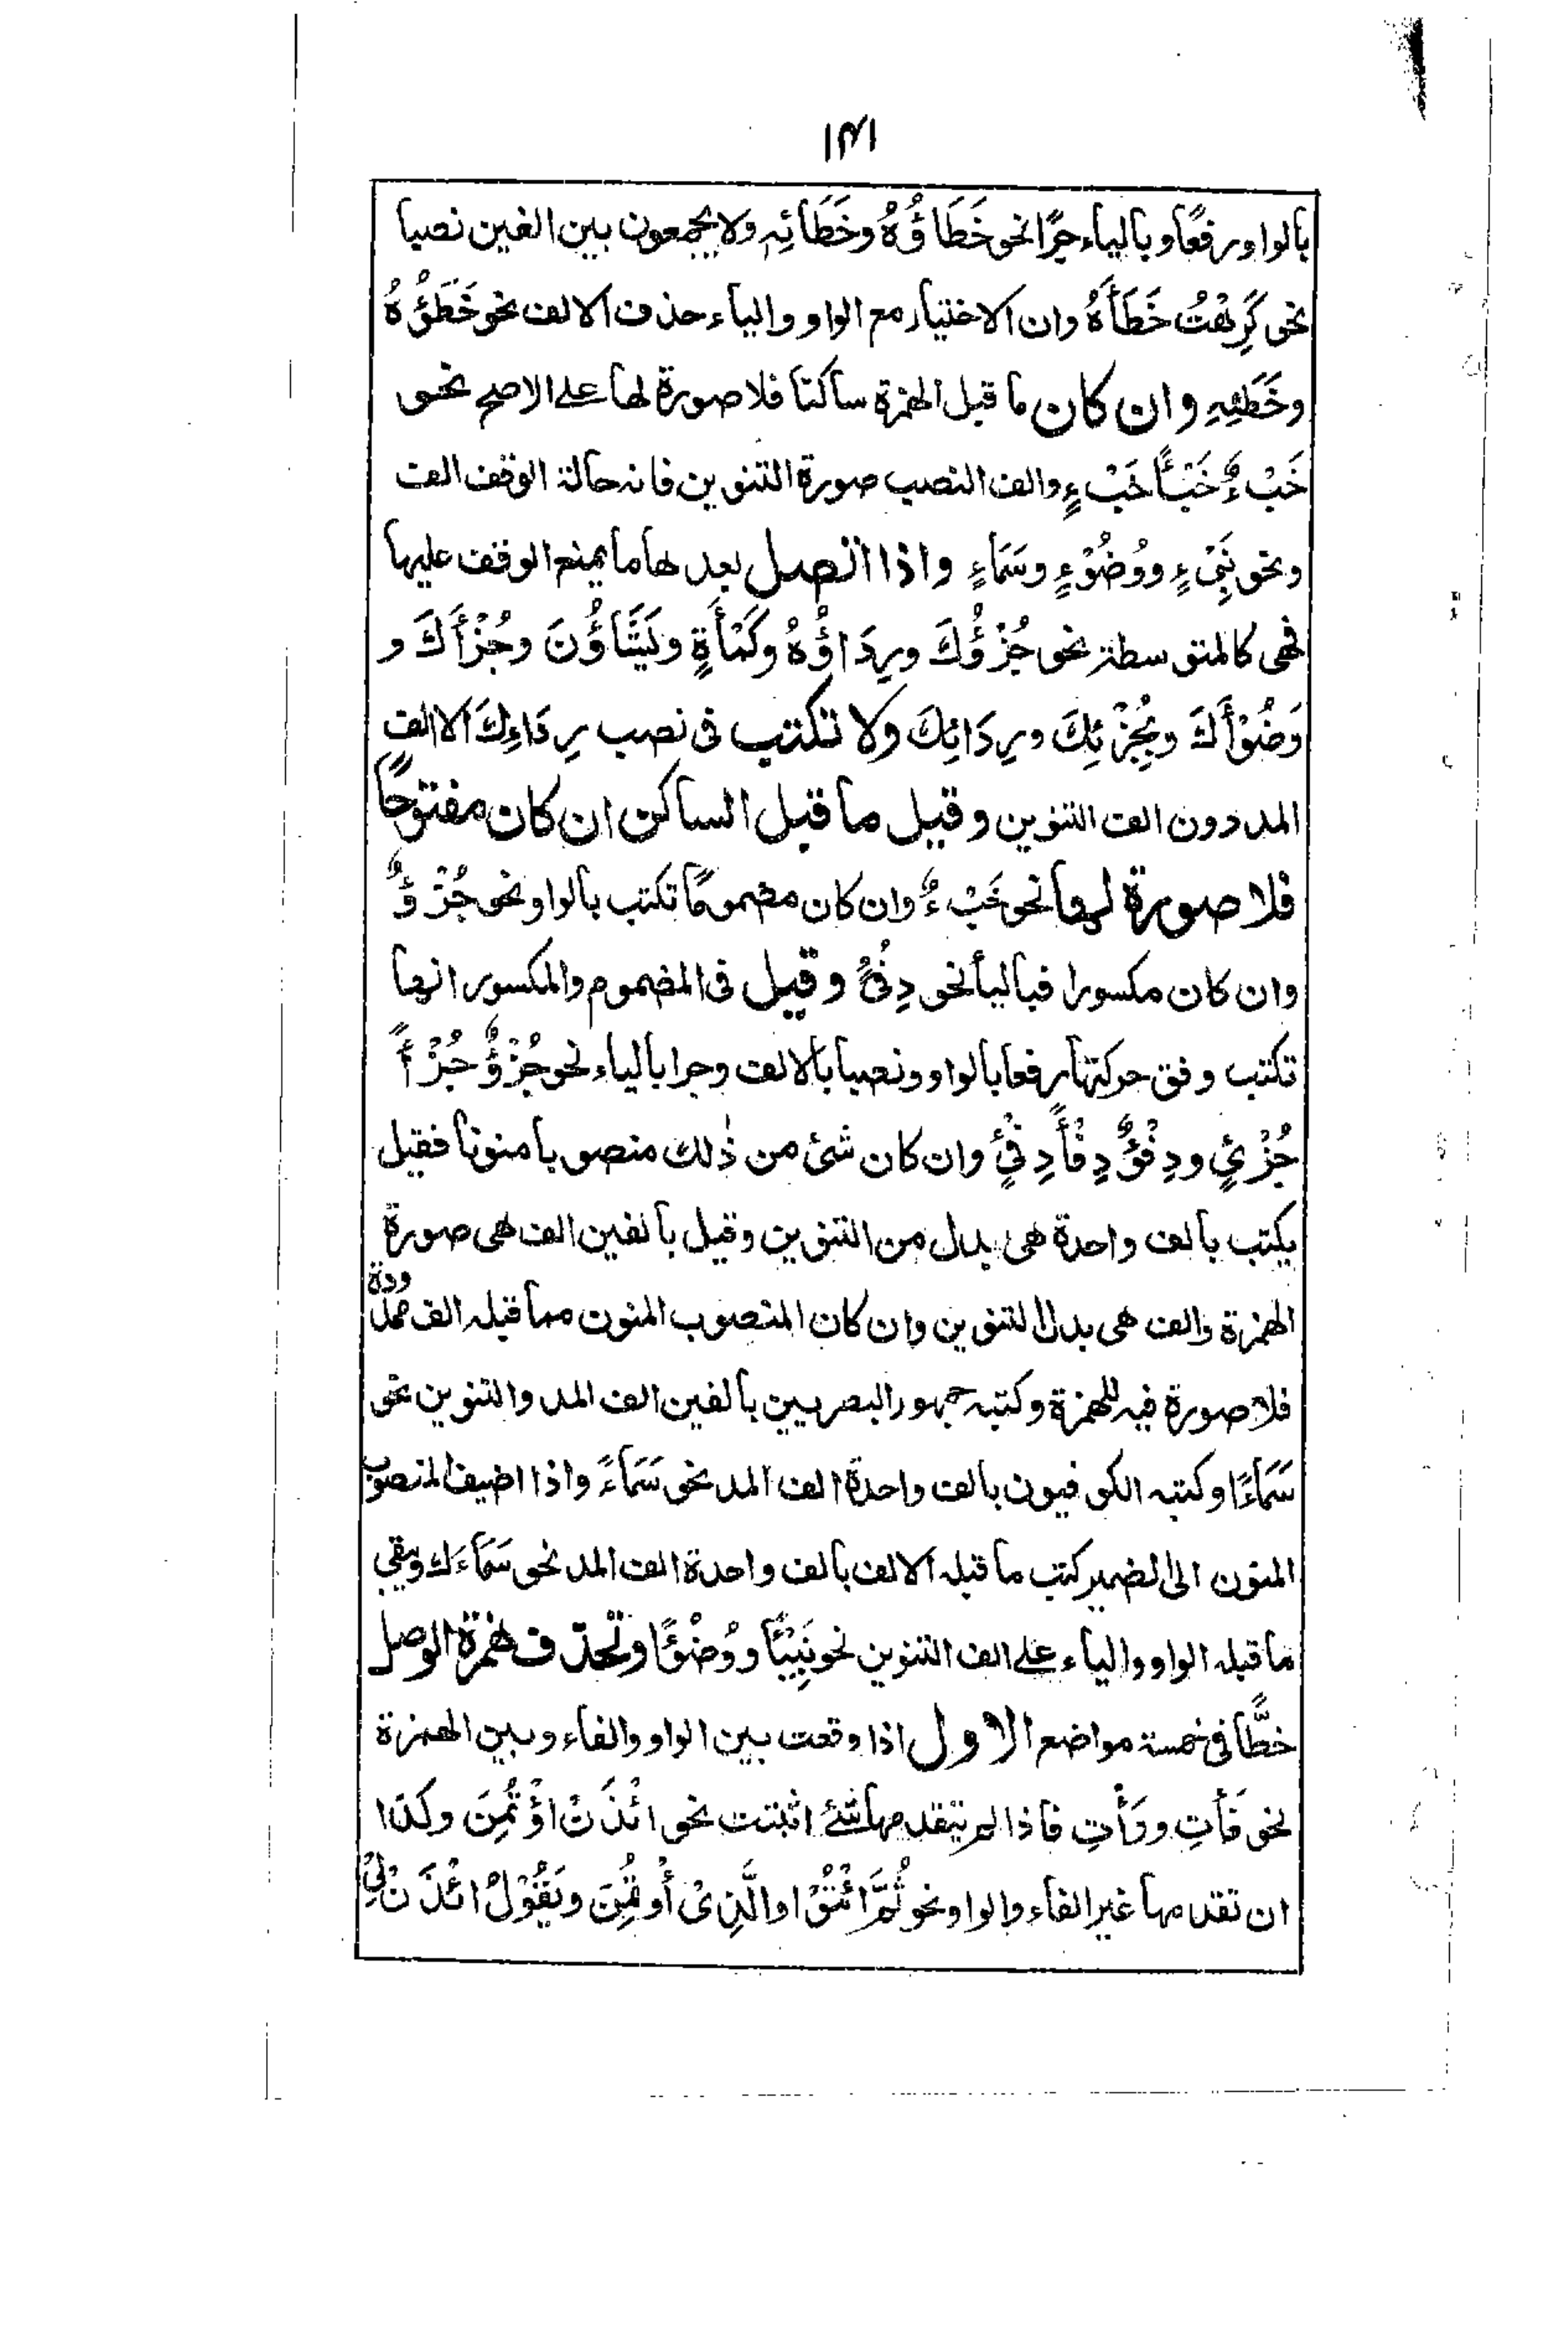 ۱۴۱
بالواو رفعًا وبالياء جرًّا نحو خَطَاؤُهُ وخَطَائِهٖ ولا يجمعون بين الفين نصبا
نحو كَرِهْتُ خَطَأَهُ وان الاختيار مع الواو والياء حذف الالف نحو خَطَؤُهُ
وخَطَئِهٖ وان كان ما قبل الهمزة ساكنا فلا صورة لها على الاصح نحو
خَبْءٌ خَبْأً خَبْءٍ والف النصب صورة التنوين فانه حالة الوقف الف
ونحو نَبِىْءٍ ووُضُوْءٍ وسَمَاءٍ واذا اتصل بعدها ما يمنع الوقف عليها
فهى كالمتوسطة نحو جُزْؤُكَ ورِدَاؤُهُ وكَمْأَةٍ ويَتَسَاؤُنَ وجُزْأَكَ و
وَضُوْأَكَ وبِجُزْئِكَ ورِدَائِكَ ولا تكتب فى نصب رِدَاءِكَ الا الف
المد دون الف التنوين وقيل ما قبل الساكن ان كان مفتوحًا
فلا صورة لها نحو خَبْءٌ وان كان مضمومًا تكتب بالواو نحو جُزْؤٌ
وان كان مكسورا فبالياء نحو دِفْئٌ وقيل فى المضموم والمكسور انها
تكتب وفق حركتها رفعا بالواو ونصبا بالالف وجرا بالياء نحو جُزْؤٌ جُزْأً
جُزْئٍ ودِفْؤٌ دِفْأً دِفْئٍ وان كان شئ من ذٰلك منصوبا منونا فقيل
يكتب بالف واحدة هى بدل من التنوين وقيل بالفين الف هى صورة
الهمزة والف هى بدل التنوين وان كان المنصوب المنون مما قبله الف ممدودة
فلا صورة فيه للهمزة وكتبه جمهور البصريين بالفين الف المد والتنوين نحو
سَمَاءًا وكتبه الكوفيون بالف واحدة الف المد نحو سَمَاءً واذا اضيف المنصوب
المنون الى الضمير كتب ما قبله الالف بالف واحدة الف المد نحو سَمَاءَك ويبقى
ما قبله الواو والياء على الف التنوين نحو نَبِيْئًا ووُضُؤًا وتحذف همزة الوصل
خطًّا فى خمسة مواضع الاول اذا وقعت بين الواو والفاء وبين الهمزة
نحو فَأْتِ ووَأْتِ فاذا لم يتقدمها شئ اثبتت نحو ائْذَنْ اؤْتُمِنَ وكذا
ان تقدمها غير الفاء والواو نحو ثُمَّ ائْتُوْا والَّذِىْ أُوتُمِنَ ويَقُوْلُ ائْذَنْ لِىْ